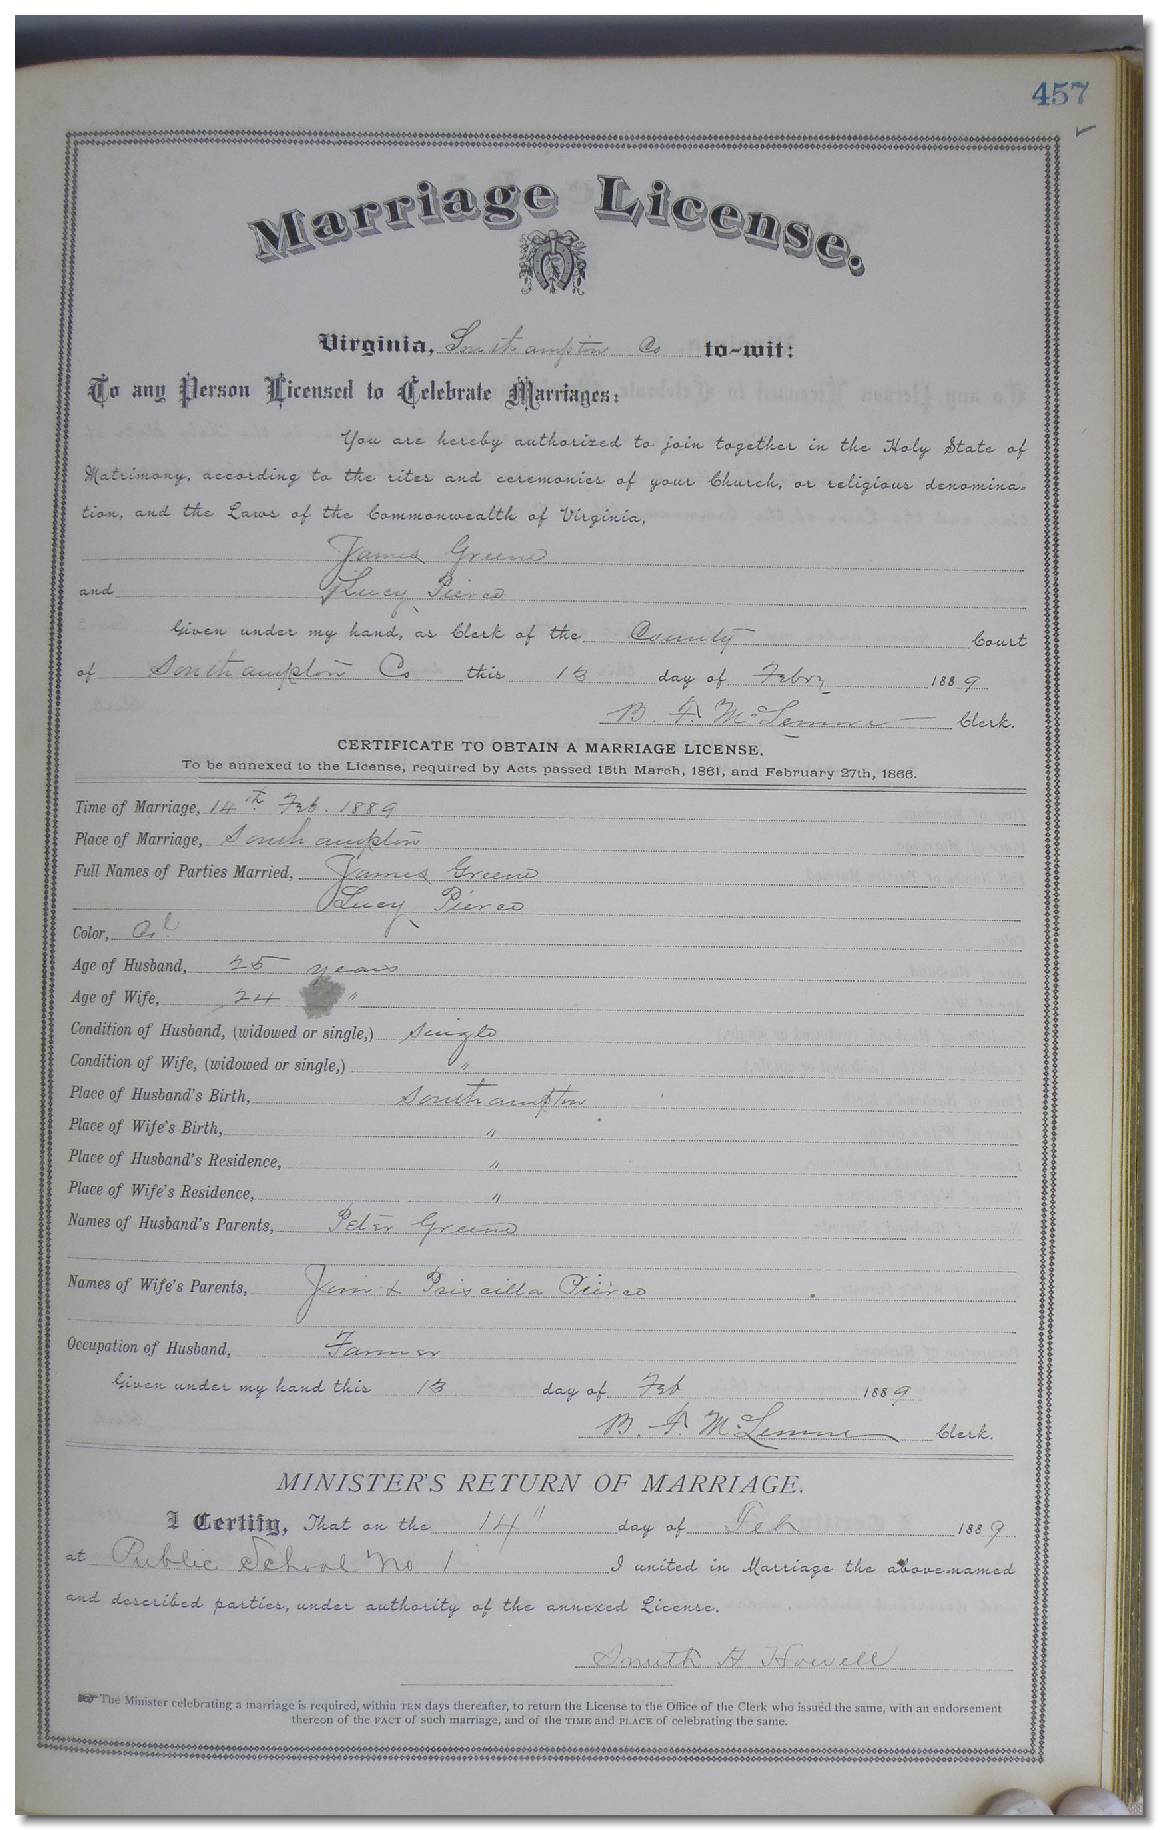 457
Marriage License.
Virginia, Southampton Co to-wit:
To any Person Licensed to Celebrate Marriages:
You are hereby authorized to join together in the Holy State of
Matrimony, according to the rites and ceremonies of your Church, or religious denomina-
tion, and the Laws of the Commonwealth of Virginia,
James Greene
and Lucy Pierce
Given under my hand, as Clerk of the County Court
of Southampton Co this 13 day of Febry 1889
B. F. McLemore Clerk.
CERTIFICATE TO OBTAIN A MARRIAGE LICENSE.
To be annexed to the License, required by Acts passed 15th March, 1861, and February 27th, 1866.
Time of Marriage, 14th Feb. 1889
Place of Marriage, Southampton
Full Names of Parties Married, James Greene
Lucy Pierce
Color, Col
Age of Husband, 25 years
Age of Wife, 24 "
Condition of Husband, (widowed or single,) Single
Condition of Wife, (widowed or single,) "
Place of Husband's Birth, Southampton
Place of Wife's Birth, "
Place of Husband's Residence, "
Place of Wife's Residence, "
Names of Husband's Parents, Peter Greene
Names of Wife's Parents, Jim & Priscilla Pierce
Occupation of Husband, Farmer
Given under my hand this 13 day of Feb 1889
B. F. McLemore Clerk.
MINISTER'S RETURN OF MARRIAGE.
I Certify, That on the 14" day of Feb 1889
at Public School No 1 I united in Marriage the above-named
and described parties, under authority of the annexed License.
Smith H Howell
The Minister celebrating a marriage is required, within TEN days thereafter, to return the License to the Office of the Clerk who issued the same, with an endorsement
thereon of the FACT of such marriage, and of the TIME and PLACE of celebrating the same.